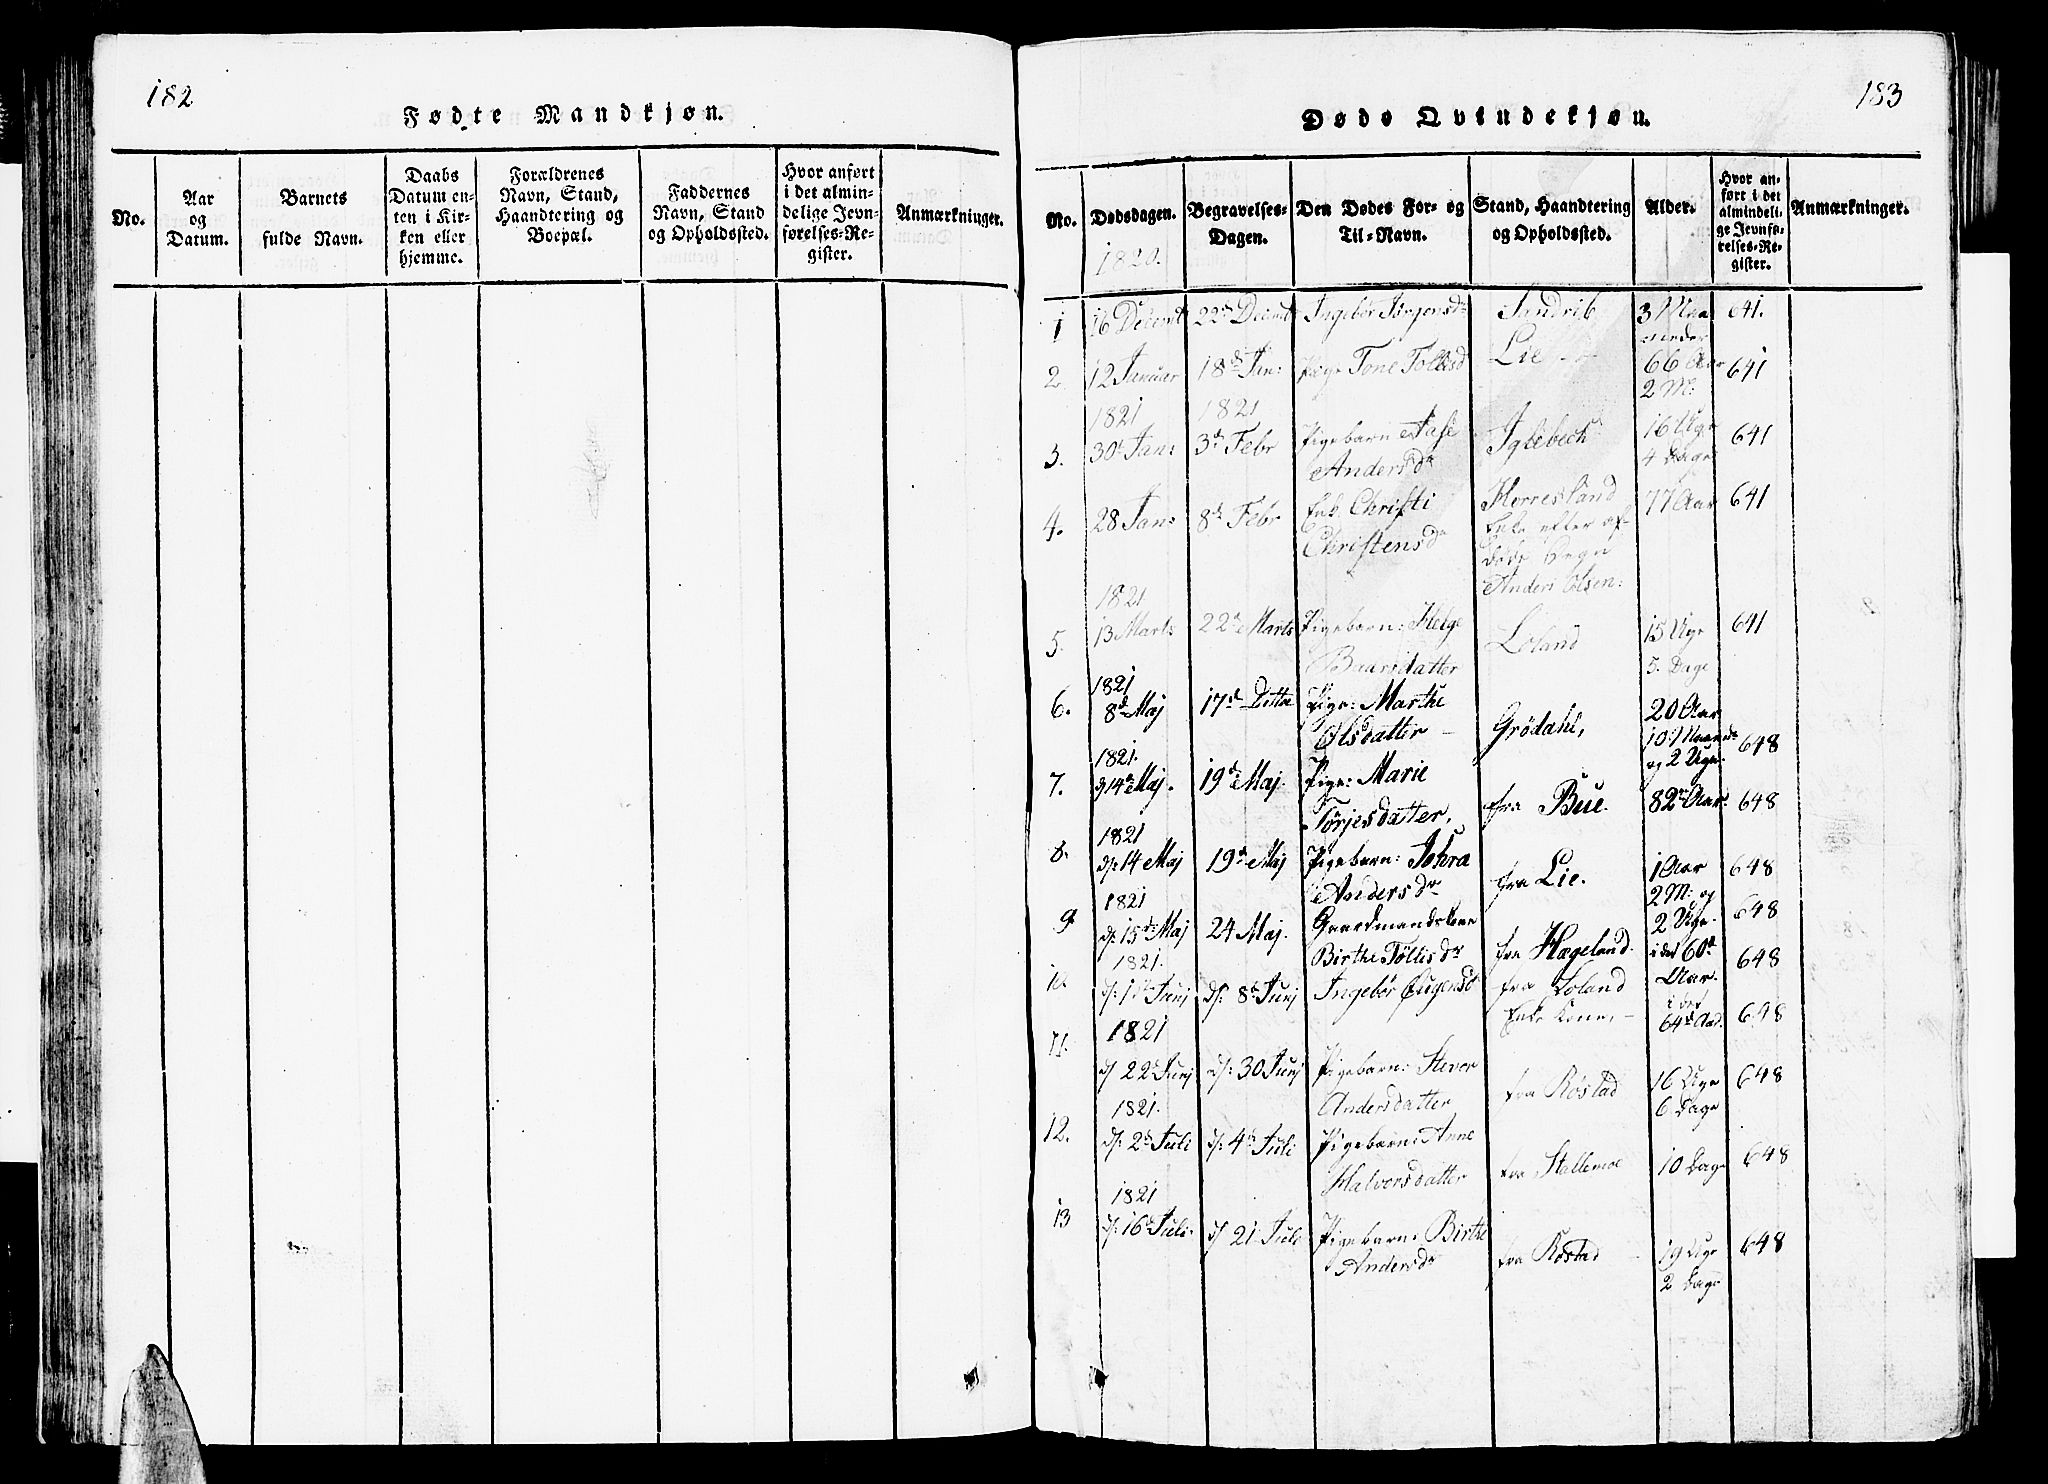 182
Fødte Mandkjøn.
No.
Aar
og
Datum.
Barnets
fulde Navn.
Daabs
Datum en-
ten i Kir-
ken eller
hjemme.
Forældrenes
Navn, Stand,
Haandtering og
Boepæl.
Faddernes
Navn, Stand
og Opholdssted.
Hvor anført
i det almin-
delige Jevn-
førelses-Re-
gister.
Anmærkninger.
183
Døde Qvindekjøn.
No.
Dødsdagen.
1820.
Begravelses-
Dagen.
Den Dødes For- og
Til-Navn.
Stand, Haandtering
og Opholdssted.
Alder.
Hvor an-
ført i det
almindeli-
ge Jevnfø-
relses-Re-
gister.
Anmærkninger.
1 16 Decembr 22de Decembr Ingebor Jørgensdr 3 Maa 641.
neder
2 12 Januar 18de Jan: Pige Tone Tollisd Lie 66 Aar 641
2 M:
1821 1821
3. 30te Jan: 3de Febr Pigebarn Aase Iglebech 16 Uge 641
Andersdr 4 Dage
4. 28 Jan: 8de Febr Enk. Christi Herresland 77 Aar 641
Christensdr Enke efter af-
døde
Anders Olsen:
1821
5. 13 Marts 22de Marts Pigebarn: Helge Loland 15 Uge 641
Baarsdatter 5. Dage
1821
6. 8de Maj 17de Ditto Pige: Marthe Grødahl, 20 Aar
Olsdatter 10 Maaneder 648
og 2 Uger.
1821.
7. 14de Maj. 19de Maj. Pige: Marie fra Bue. 82 Aar. 648
Tørjesdatter.
1821
8. d: 14 Maj 19de Maj Pigebarn: Johra fra Lie. 1 Aar 648
Andersdr 2 M: og
2 Uge.
1821
9 d: 15de Maj 24 Maj. Gaardmandskone fra Hægeland. i det 60de 648
Birthe Tøllisdr Aar.
1821.
10. Junj d: 8de Junj Ingebor fra Loland i det 648
Enke Kone. 64de Aar.
1821
11. d 22de Junj d: 30 Junj Pigebarn: fra Røstad 16 Uge 648
Andersdatter 6 Dage
1821.
12. d: 2de Juli d: 4de Juli Pigebarn: Anne fra Stallemoe 10 Dage 648
Halvorsdatter
1821
13 d: 16de Juli. d 21 Juli Pigebarn: Birthe fra Røstad 19 Uge 648
Andersdr 2 Dage